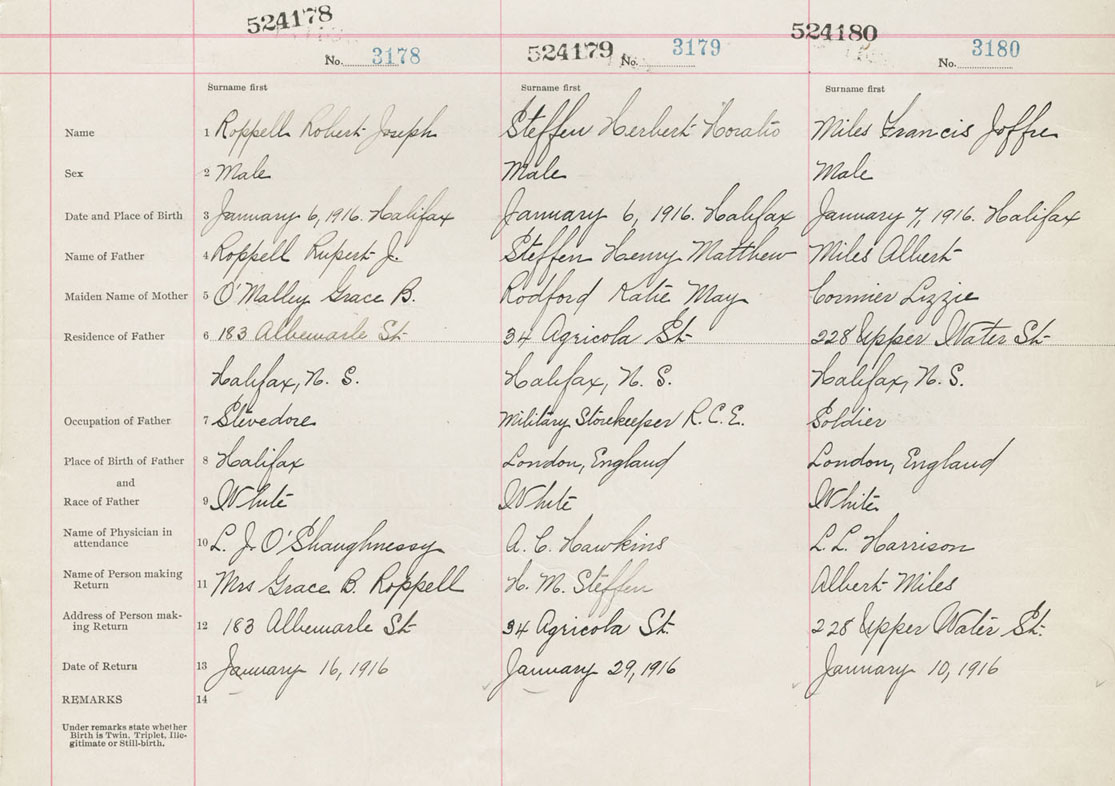 524178 524179 524180
No. 3178 No. 3179 No. 3180
Surname first Surname first Surname first
Name 1 Roppell Robert Joseph Steffen Herbert Horatio Miles Francis Joffre
Sex 2 Male Male Male
Date and Place of Birth 3 January 6, 1916. Halifax January 6, 1916. Halifax January 7, 1916. Halifax
Name of Father 4 Roppell Rupert J. Steffen Henry Matthew Miles Albert
Maiden Name of Mother 5 O'Malley Grace B. Rodford Katie May Cormier Lizzie
Residence of Father 6 183 Albemarle St 34 Agricola St 228 Upper Water St
Halifax, N. S. Halifax, N. S. Halifax, N. S.
Occupation of Father 7 Stevedore Military Storekeeper R.C.E. Soldier
Place of Birth of Father 8 Halifax London, England London, England
and
Race of Father 9 White White White
Name of Physician in
attendance 10 L. J. O'Shaughnessy A. C. Hawkins L. L. Harrison
Name of Person making
Return 11 Mrs Grace B. Roppell H. M. Steffen Albert Miles
Address of Person mak-
ing Return 12 183 Albemarle St 34 Agricola St. 228 Upper Water St.
Date of Return 13 January 16, 1916 January 29, 1916 January 10, 1916
REMARKS 14
Under remarks state whether
Birth is Twin, Triplet, Ille-
gitimate or Still-birth.